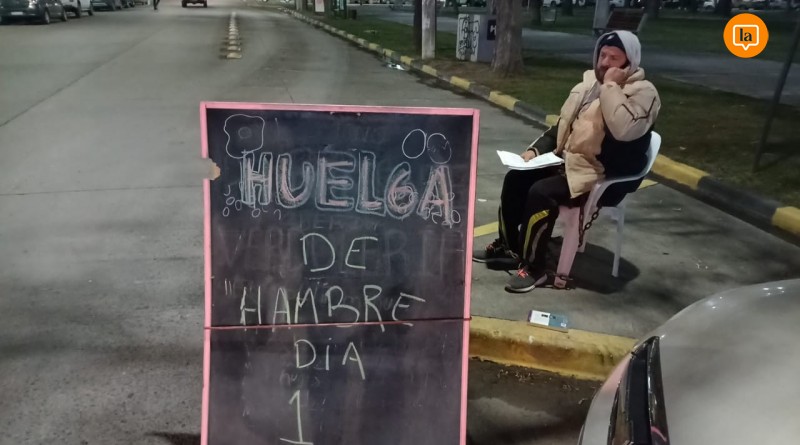 la
HUELGA
DE
"HAMBRE
DIA
1